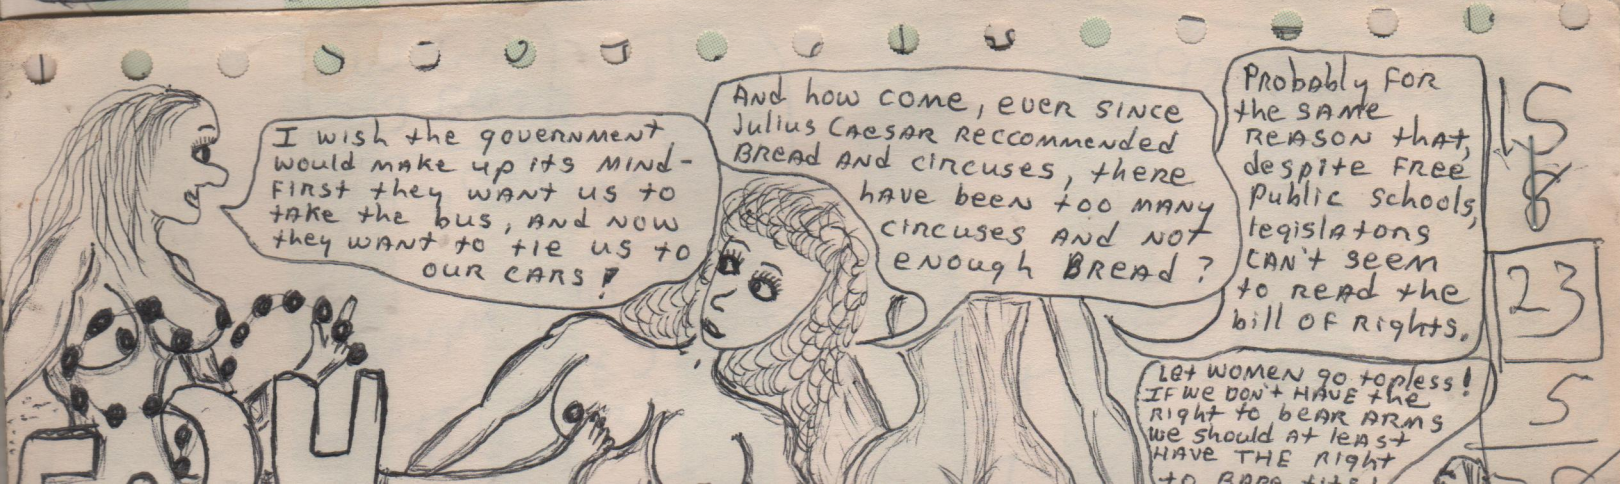 I WISH the GOVERNMENT
WOULD MAKE UP ITS MIND-
FIRST they WANT US to
tAKE the bus, AND NOW
they WANT to tIE US to
OUR CARS!
AND how COME, EVER SINCE
Julius CAESAR RECCOMMENDED
BREAD AND CIRCUSES, there
HAVE bEEN too MANY
CIRCUSES AND NOT
ENOUGH BREAD?
PRObAbly FOR
the SAME
REASON that,
dESPITE FREE
Public Schools,
legislatons
CAN't SEEM
to READ the
bill OF RIGhtS.
LEt WOMEN go topless!
IF WE DON't HAVE the
RIGHt to bEAR ARMS
WE should At lEASt
HAVE THE RIGHt
to BARE tits!
15
8
23
5